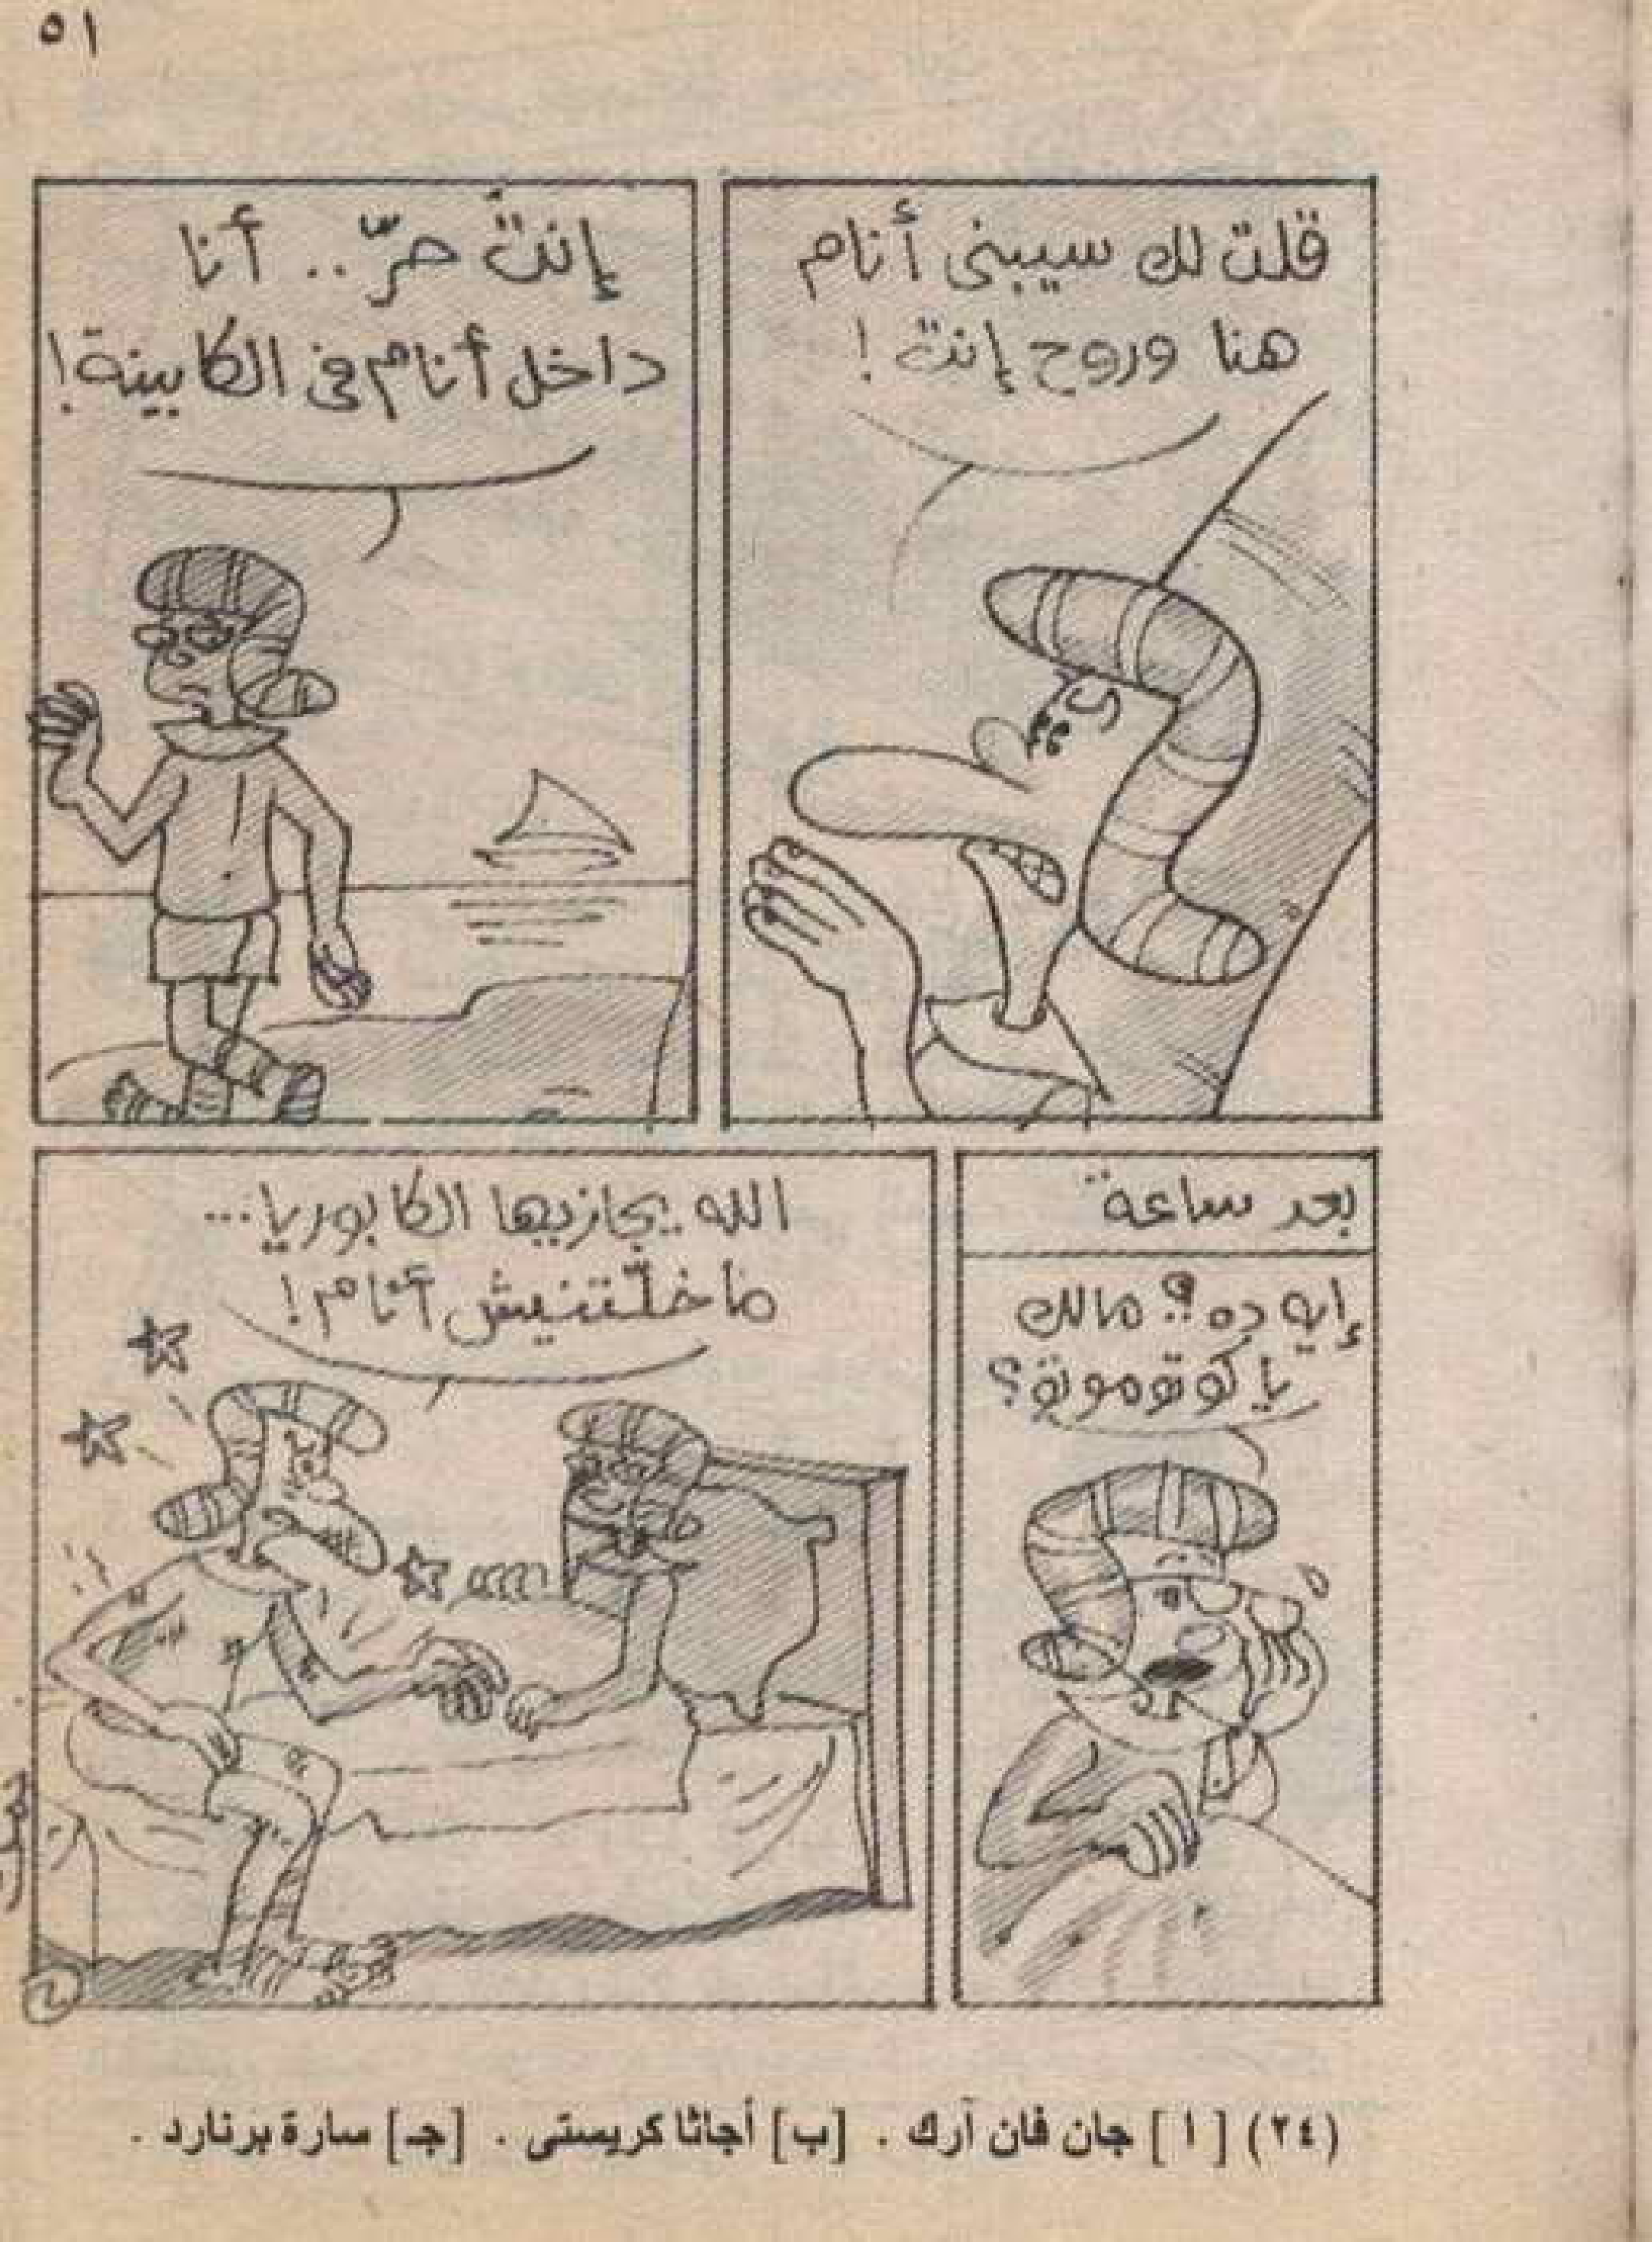 ٥١
قلت لك سيبنى أنام
هنا وروح إنت !
إنتَ حرّ .. أنا
داخل أنام فى الكابينة !
بعد ساعة
إيه ده ؟ مالك
يا كوتوموتو ؟
الله يجازيها الكابوريا ...
ماخلّتنيش أنام !
(٢٤) [ ا ] جان فان آرك . [ب] أجاثا كريستى . [جـ] سارة برنارد .